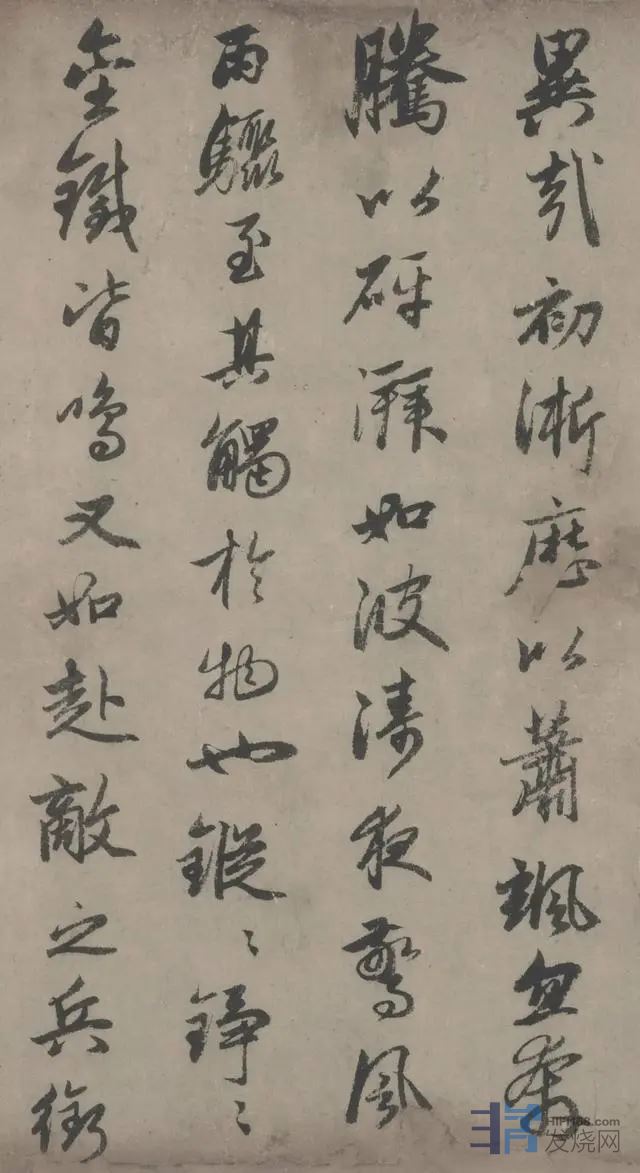 異哉初淅歷以蕭颯忽奔
騰以砰湃如波濤夜驚風
雨驟至其觸於物也鏦〻錚〻
金鐵皆鳴又如赴敵之兵銜
HIFI168.com
发烧网